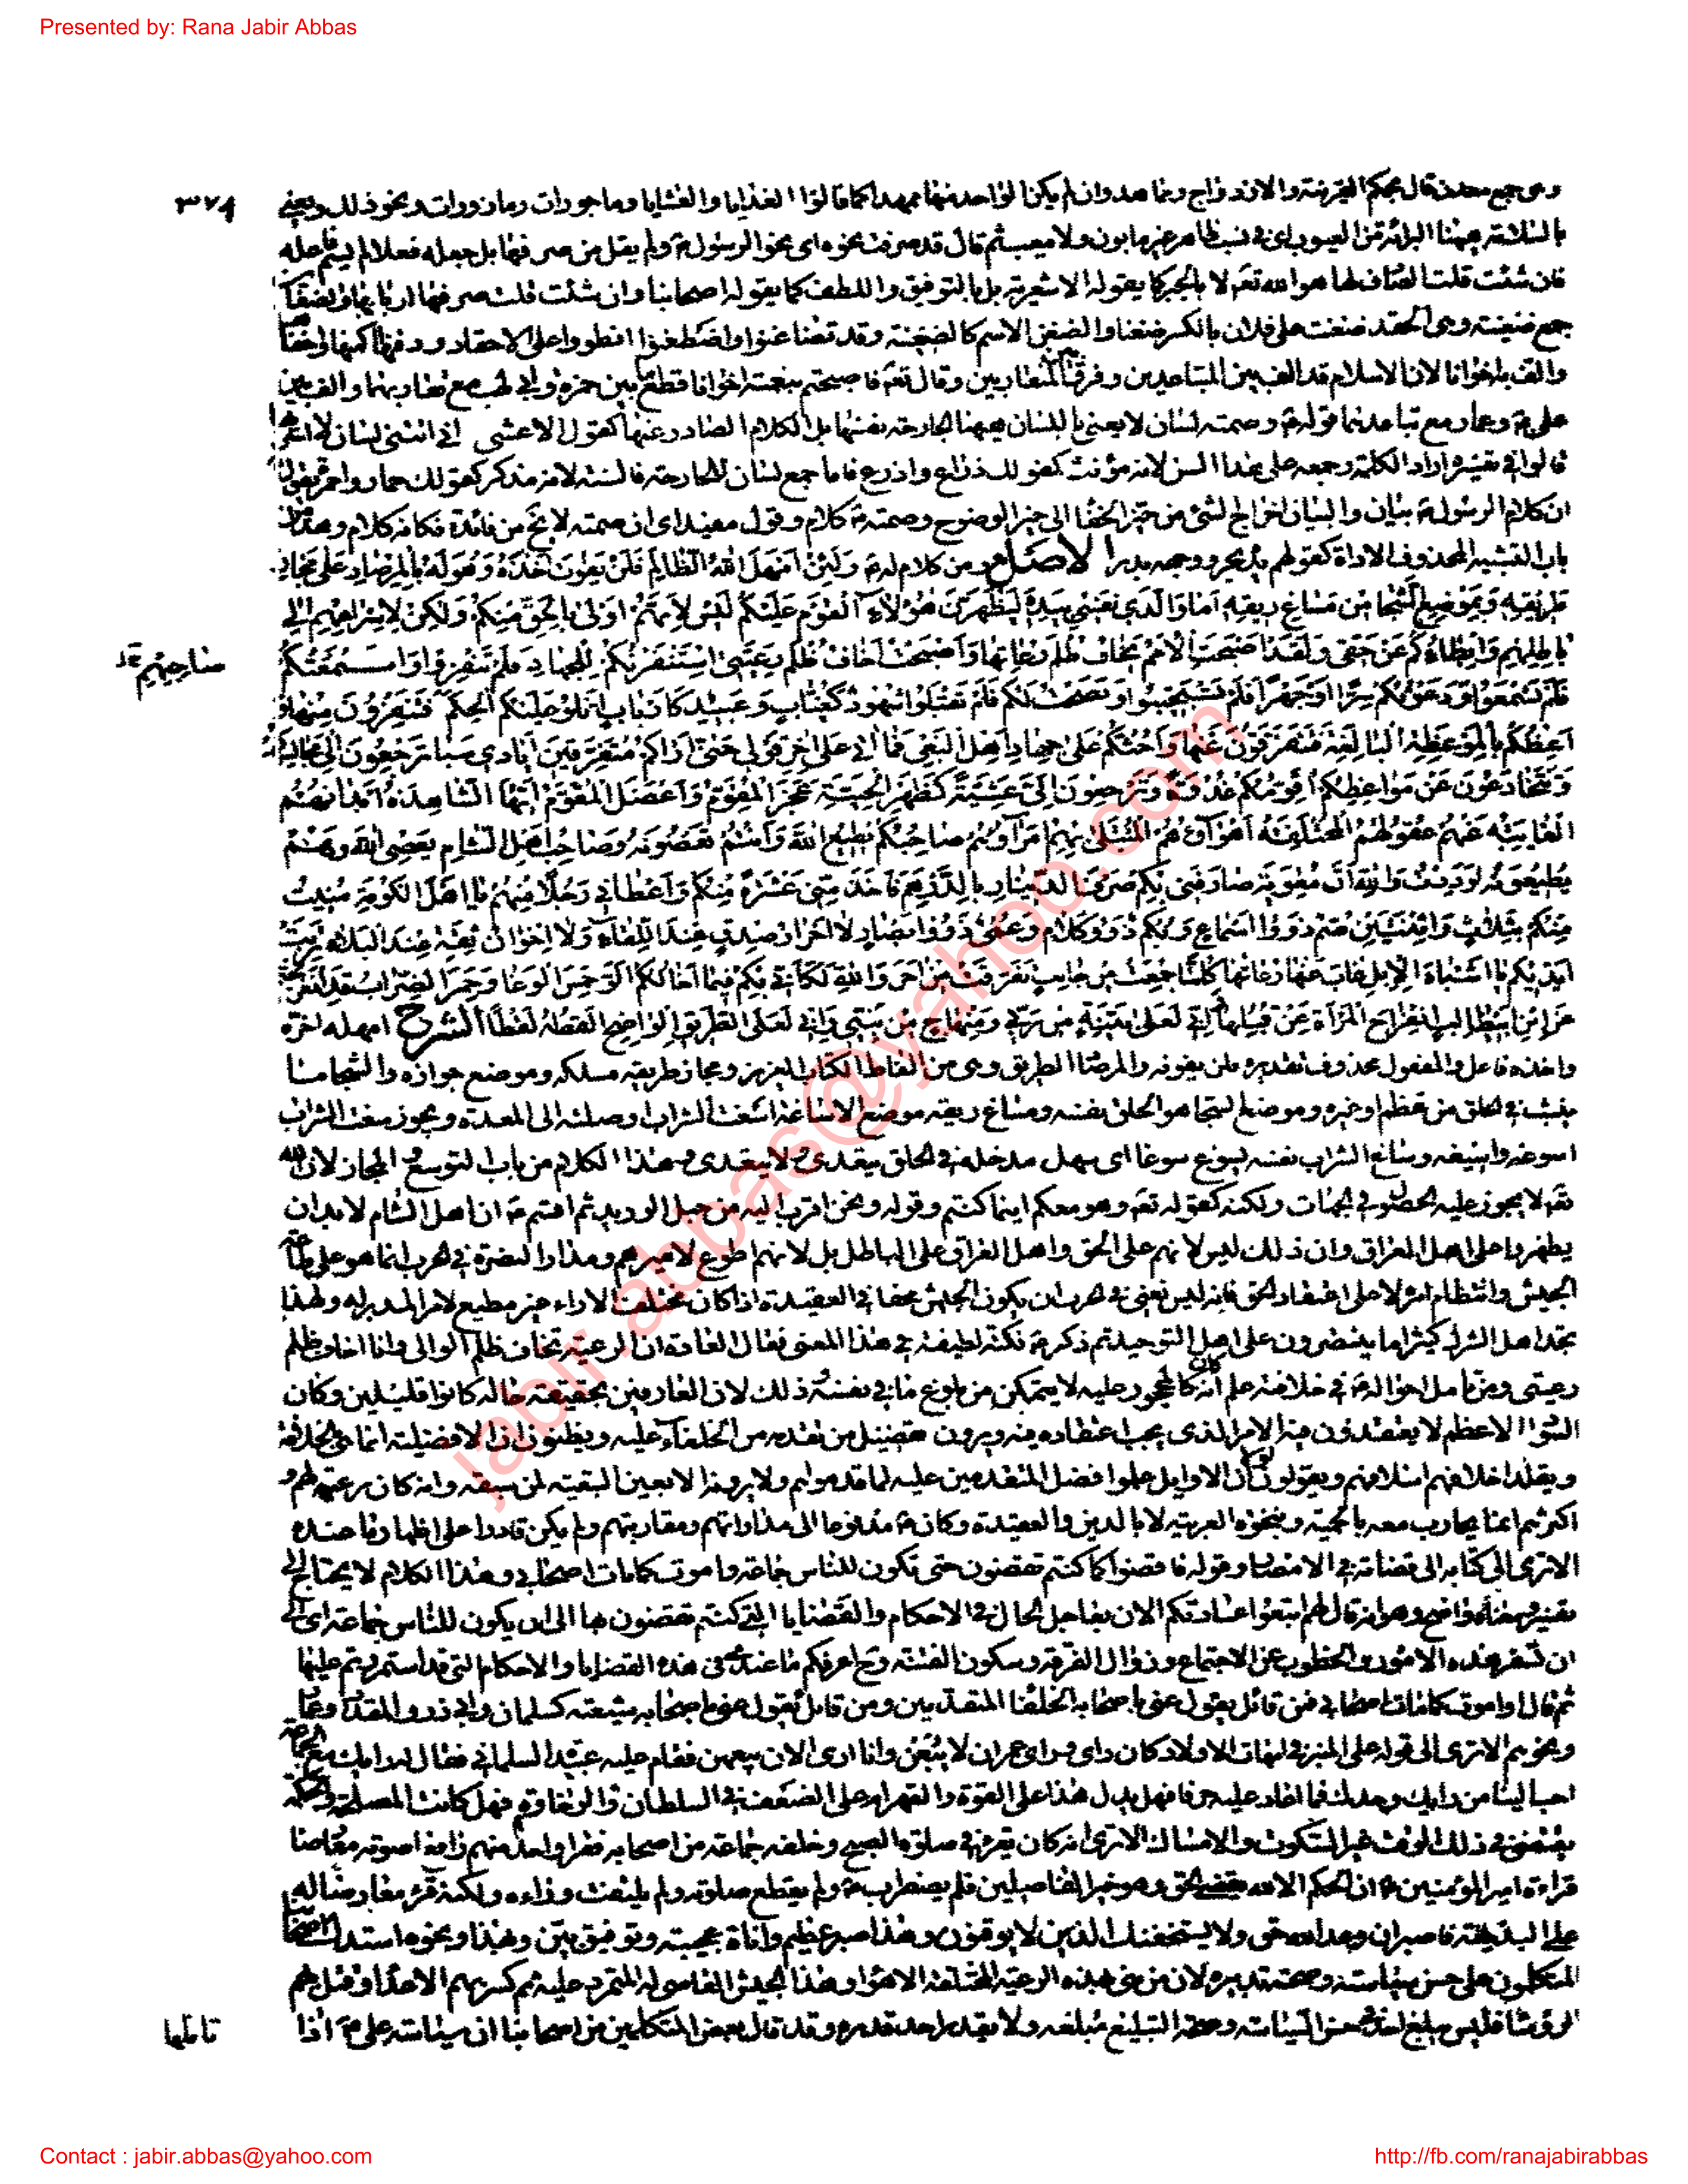 Presented by: Rana Jabir Abbas
٣٧٩
وهى جمع معدن قال بحكم القرينة والازدواج وبما هد وان لم يكن الواحد منهما ممهدا كما قالوا الغدايا والعشايا وماجورات ومازورات ونحو ذلك ويعنى
بالسلامة ههنا البرائة من العيوب اى فى نسب طاهر غير مابون ولا معيب ثم قال قد صرفت نحوه اى نحو الرسول ولم يقل من صرفها بل جعله فعلا لم يسم فاعله
فان شئت قلت الصارف لها هو الله تعالى لا بالجبر كما يقوله الاشعرية بل بالتوفيق واللطف كما يقوله اصحابنا وان شئت قلت صرفها اربابها والضغائن
جمع ضغينة وهى الحقد ضغنت على فلان بالكسر ضغنا والضغن الاسم كالضغينة وقد تضاغنوا واضطغنوا انطووا على الاحقاد ودفنها اكمنها واخفاها
والف به اخوانا لان الاسلام قد الف بين المتباعدين وفرق بين المتقاربين وقال تعالى فاصبحتم بنعمته اخوانا قطع بين حمزة وابى لهب مع تقاربهما والف بين
على وعمار مع تباعدهما قوله وصمته لسان لا يعنى باللسان ههنا الجارحة نفسها بل الكلام الصادر عنها كقول الاعشى انى اتتنى لسان لا اسر بها
قالوا فى تفسيره اراد الكلمة وجمعه على هذا السن لانه مؤنث كقولك ذراع واذرع فاما جمع لسان للجارحة فالسنة لانه مذكر كقولك حمار واحمرة يقول
ان كلام الرسول بيان والبيان اخراج الشئ من حيز الخفاء الى حيز الوضوح وصمته كلام وقول مفيد اى ان صمته لا يخ من فائدة فكانه كلام وهذا من
باب التشبيه المحذوف الاداة كقولهم يده بحر ووجهه بدر الاصل ومن كلام له وَلَئِنْ اَمْهَلَ اللهُ الظّالِمَ فَلَنْ يَفُوتَ اَخْذُهُ وَهُوَ لَهُ بِالْمِرْصَادِ عَلى مَجَازِ
طَرِيقِهِ وَبِمَوْضِعِ الشَّجَا مِنْ مَسَاغِ رِيقِهِ اَمَا وَالَّذِى نَفْسِى بِيَدِهِ لَيَظْهَرَنَّ هؤُلاءِ الْقَوْمُ عَلَيْكُمْ لَيْسَ لِاَنَّهُمْ اَوْلى بِالْحَقِّ مِنْكُمْ وَلكِنْ لِاِسْرَاعِهِمْ اِلى
بَاطِلِهِمْ وَاِبْطَائِكُمْ عَنْ حَقِّى وَلَقَدْ اَصْبَحَتِ الْاُمَمُ تَخَافُ ظُلْمَ رُعَاتِهَا وَاَصْبَحْتُ اَخَافُ ظُلْمَ رَعِيَّتِى اِسْتَنْفَرْتُكُمْ لِلْجِهَادِ فَلَمْ تَنْفِرُوا وَاَسْمَعْتُكُمْ
صاحبهم
فَلَمْ تَسْمَعُوا وَدَعَوْتُكُمْ سِرًّا وَجَهْرًا فَلَمْ تَسْتَجِيبُوا وَنَصَحْتُ لَكُمْ فَلَمْ تَقْبَلُوا شُهُودٌ كَغُيَّابٍ وَعَبِيدٌ كَاَرْبَابٍ اَتْلُو عَلَيْكُمُ الْحِكَمَ فَتَنْفِرُونَ مِنْهَا وَ
اَعِظُكُمْ بِالْمَوْعِظَةِ الْبَالِغَةِ فَتَتَفَرَّقُونَ عَنْهَا وَاَحُثُّكُمْ عَلى جِهَادِ اَهْلِ الْبَغْىِ فَمَا اتِى عَلى اخِرِ قَوْلِى حَتّى اَرَاكُمْ مُتَفَرِّقِينَ اَيَادِى سَبَا تَرْجِعُونَ اِلى مَجَالِسِكُمْ
وَتَتَخَادَعُونَ عَنْ مَوَاعِظِكُمْ اُقَوِّمُكُمْ غُدْوَةً وَتَرْجِعُونَ اِلَىَّ عَشِيَّةً كَظَهْرِ الْحَيَّةِ عَجَزَ الْمُقَوِّمُ وَاَعْضَلَ الْمُقَوَّمُ اَيُّهَا الشَّاهِدَةُ اَبْدَانُهُمُ
الْغَائِبَةُ عَنْهُمْ عُقُولُهُمُ الْمُخْتَلِفَةُ اَهْوَاؤُهُمُ الْمُبْتَلى بِهِمْ اُمَرَاؤُهُمْ صَاحِبُكُمْ يُطِيعُ اللهَ وَاَنْتُمْ تَعْصُونَهُ وَصَاحِبُ اَهْلِ الشَّامِ يَعْصِى اللهَ وَهُمْ
يُطِيعُونَهُ لَوَدِدْتُ وَاللهِ اَنَّ مُعَوِيَةَ صَارَفَنِى بِكُمْ صَرْفَ الدِّينَارِ بِالدِّرْهَمِ فَاَخَذَ مِنِّى عَشَرَةً مِنْكُمْ وَاَعْطَانِى رَجُلًا مِنْهُمْ يَا اَهْلَ الْكُوفَةِ مُنِيتُ
مِنْكُمْ بِثَلاثٍ وَاثْنَتَيْنِ صُمٌّ ذَوُوا اَسْمَاعٍ وَبُكْمٌ ذَوُو كَلامٍ وَعُمْىٌ ذَوُوا اَبْصَارٍ لا اَحْرَارُ صِدْقٍ عِنْدَ اللِّقَاءِ وَلا اِخْوَانُ ثِقَةٍ عِنْدَ الْبَلاءِ تَرِبَتْ
اَيْدِيكُمْ يَا اَشْبَاهَ الْاِبِلِ غَابَ عَنْهَا رُعَاتُهَا كُلَّمَا جُمِعَتْ مِنْ جَانِبٍ تَفَرَّقَتْ مِنْ اخَرَ وَاللهِ لَكَاَنِّى بِكُمْ فِيمَا اَخَالُكُمْ اَلَوْ حَمِسَ الْوَغَا وَحَمِىَ الضِّرَابُ قَدِ انْفَرَجْتُمْ
عَنِ ابْنِ اَبِيطَالِبٍ انْفِرَاجَ الْمَرْاَةِ عَنْ قُبُلِهَا اِنِّى لَعَلى بَيِّنَةٍ مِنْ رَبِّى وَمِنْهَاجٍ مِنْ نَبِيِّى وَاِنِّى لَعَلَى الطَّرِيقِ الْوَاضِحِ اَلْقُطُهُ لَقْطًا الشرح امهله اخره
واخذه فاعل والمفعول محذوف تقديره فلن يفوته والمرصاد الطريق وهى من الفاظ الكتاب العزيز ومجاز طريقه مسلكه وموضع جوازه والشجا ما
ينشب فى الحلق من عظم او غيره وموضع الشجا هو الحلق نفسه ومساغ ريقه موضع الاساغة اسغت الشراب اوصلته الى المعدة ويجوز سغت الشراب
اسوغه واسيغه وساغ الشراب نفسه يسوغ سوغا اى سهل مدخله فى الحلق يتعدى ولا يتعدى وهذا الكلام من باب التوسع والمجاز لان الله
تعالى لا يجوز عليه الحصول فى الجهات ولكنه كقوله تعالى وهو معكم اينما كنتم وقوله ونحن اقرب اليه من حبل الوريد ثم اقسم ان اهل الشام لا بد ان
يظهروا على اهل العراق وان ذلك ليس لانهم على الحق واهل العراق على الباطل بل لانهم اطوع لاميرهم ومدار النصرة فى الحرب انما هو على طاعة
الجيش وانتظام امره لا على اعتقاد الحق فانه ليس يغنى فى الحرب ان يكون الجيش محقا فى العقيدة اذا كان مختلف الاراء غير مطيع لامر المدبر له ولهذا
تجد اهل الشرك كثيرا ما ينتصرون على اهل التوحيد ثم ذكر نكتة لطيفة فى هذا المعنى فقال العادة ان الرعية تخاف ظلم الوالى وانا اخاف ظلم
رعيتى ومن تامل احواله فى خلافته علم انه كان كالمحجور عليه لا يتمكن من بلوغ ما فى نفسه وذلك لان العارفين بحقيقة حاله كانوا قليلين وكان
السواد الاعظم لا يعتقدون فيه الامر الذى يجب اعتقاده فيه ويرون تفضيل من تقدمه من الخلفاء عليه ويظنون ان الافضلية انما هى الخلافة
ويقلد اخلافهم اسلافهم ويقولون لولا ان الاوايل علموا فضل المتقدمين عليه لما قدموهم ولا يرونه الا بعين التبعية لمن سبقه وانه كان رعية لهم و
اكثرهم انما يحارب معه بالحمية وبنخوة العربية لا بالدين والعقيدة وكان مدفوعا الى مداراتهم ومقاربتهم ولم يكن قادرا على اظهار ما عنده
الا ترى الى كتابه الى قضاته فى الامصار وقوله فاقضوا كما كنتم تقضون حتى تكون للناس جماعة واموت كما مات اصحابى وهذا الكلام لا يحتاج الى
تفسير ومعناه واضح وهو انه قال لهم اتبعوا عادتكم الان بعاجل الحال فى الاحكام والقضايا التى كنتم تقضون بها الى ان يكون للناس جماعة اى الى
ان تسفر هذه الامور والخطوب عن الاجتماع وزوال الفرقة وسكون الفتنة وح اعرفكم ما عندى فى هذه القضايا والاحكام التى قد استمررتم عليها
ثم قال او اموت كما مات اصحابى فمن قائل يقول عنى باصحابه الخلفاء المتقدمين ومن قائل يقول عنى باصحابه شيعته كسلمان وابى ذر والمقداد وعمار
ونحوهم الا ترى الى قوله على المنبر فى امهات الاولاد كان رايى وراى عمر ان لا يبعن وانا ارى الان بيعهن فقام عليه عبيدة السلمانى فقال له رايك مع الجماعة
احب الينا من رايك وحدك فما اعاد عليه حرفا فهل يدل هذا على القوة والقهر ام على الضعف فى السلطان والرخاوة فهل كانت المصلحة والحكمة
تقتضى فى ذلك الوقت غير السكوت والامساك الا ترى انه كان يقرء فى صلوة الصبح وخلفه جماعة من اصحابه فقرا واحد منهم رافعا صوته معارضا
قراءة امير المؤمنين ان الحكم الا لله يقضى الحق وهو خير الفاصلين فلم يضطرب ولم يقطع صلوته ولم يلتفت وراءه ولكنه قرء معارضا له
على البديهة فاصبر ان وعد الله حق ولا يستخفنك الذين لا يوقنون وهذا صبر عظيم واناة عجيبة وتوفيق بين وبهذا ونحوه استدل اصحابنا
المتكلمون على حسن سياسته وصحة تدبيره لان من منى بهذه الرعية المختلفة الاهواء وهذا الجيش العاصى له المتمرد عليه ثم كسر بهم الاعداء وقتل بهم
الرؤساء فليس يبلغ احد فى حسن السياسة وصحة التدبير مبلغه ولا يقدر احد قدره وقد قال بعض المتكلمين من اصحابنا ان سياسة على اذا
تاملها
jabir.abbas@yahoo.com
Contact : jabir.abbas@yahoo.com
http://fb.com/ranajabirabbas